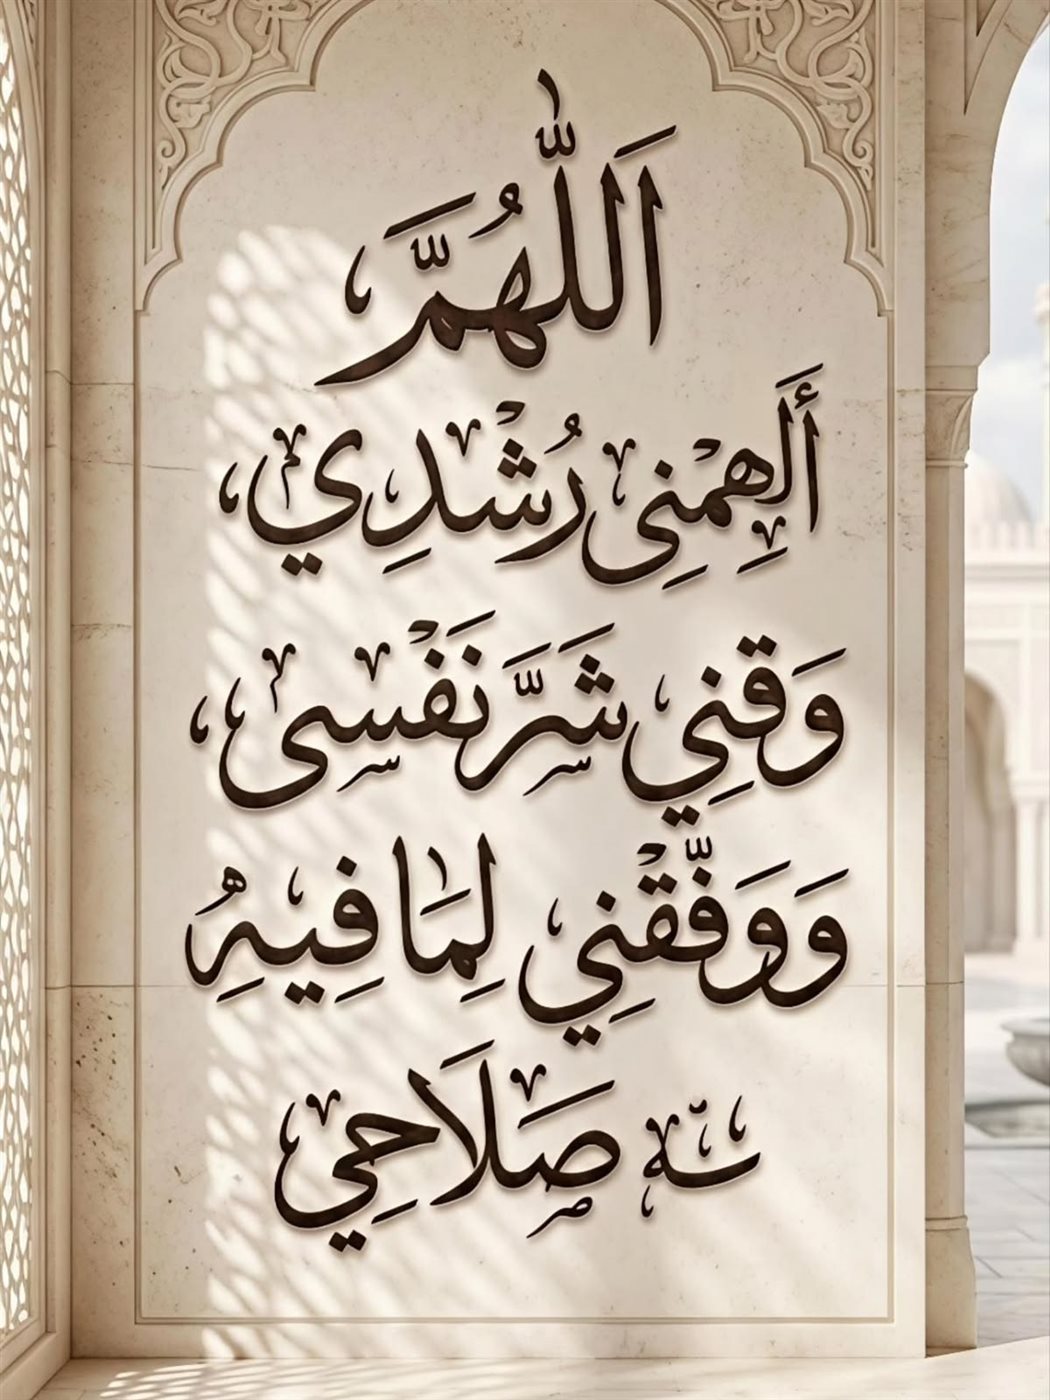 اَللّٰهُمَّ
أَلِهِمْنِي رُشْدِي،
وَقِنِي شَرَّ نَفْسِي،
وَوَفِّقْنِي لِمَا فِيهِ
صَلَاحِي